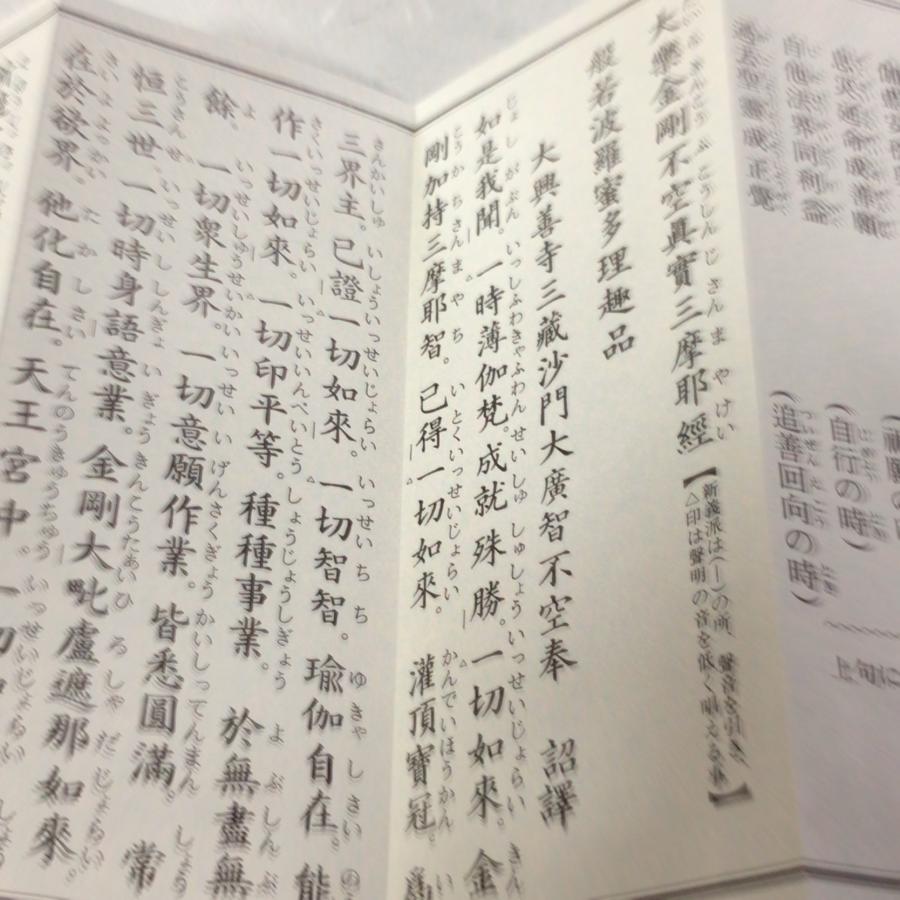 自他法界同利益
過去聖霊成正覺
(自行の時)
(追善回向の時)
上句に
大樂金剛不空眞實三摩耶經
【新義派は(｜)の所、聲音を引き、
△印は聲明の音を低く唱える事】
般若波羅蜜多理趣品
大興善寺三藏沙門大廣智不空奉 詔譯
如是我聞。一時薄伽梵。成就殊勝。一切如來。金
剛加持三摩耶智。已得一切如來。灌頂寶冠。爲
三界主。已證一切如來。一切智智。瑜伽自在。能
作一切如來。一切印平等。種種事業。於無盡無
餘。一切衆生界。一切意願作業。皆悉圓滿。常
恒三世一切時身語意業。金剛大毗盧遮那如來。
在於欲界。他化自在。天王宮中。一切